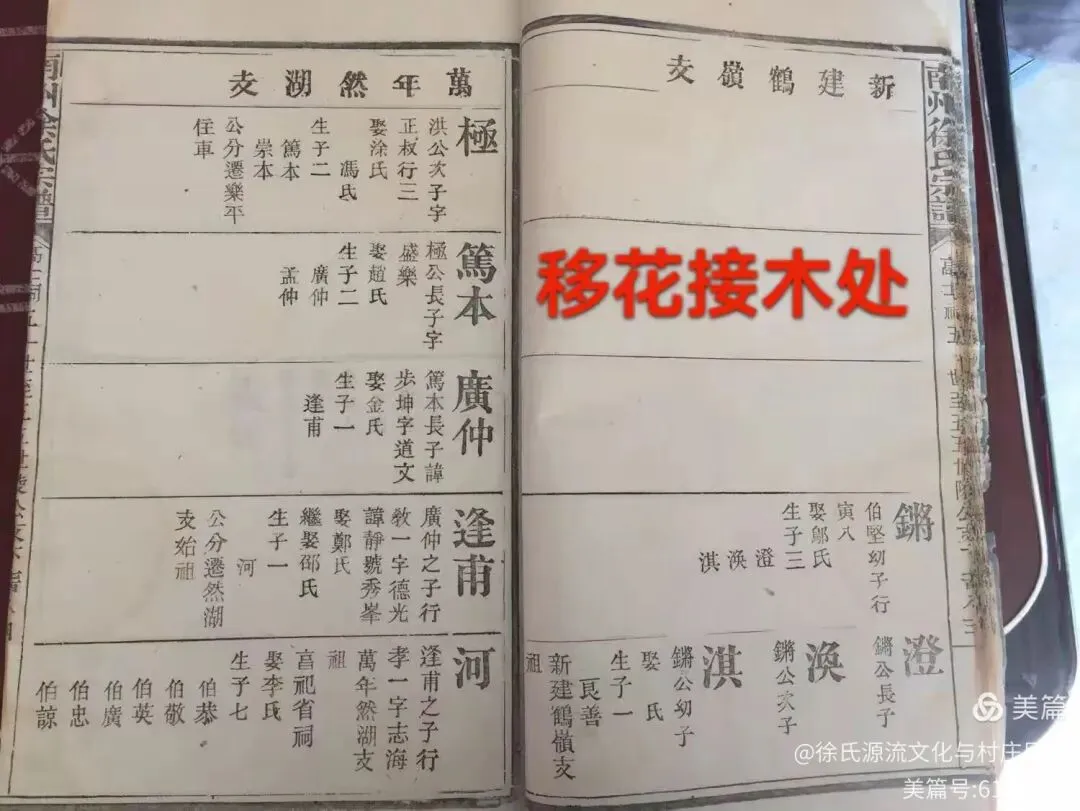 南州徐氏宗譜
新建鶴嶺支
移花接木处
鏘
伯堅幼子行
寅八
娶鄔氏
生子三
澄
渙
淇
澄
鏘公長子
渙
鏘公次子
淇
鏘公幼子
娶 氏
生子一
良善
新建鶴嶺支
祖
萬年然湖支
極
洪公次子字
正叔行三
娶涂氏
馮氏
生子二
篤本
崇本
公分遷樂平
住車
篤本
極公長子字
盛樂
娶趙氏
生子二
廣仲
孟仲
廣仲
篤本長子諱
步坤字道文
娶金氏
生子一
逢甫
逢甫
廣仲之子行
敎一字德光
諱靜號秀峯
娶鄭氏
繼娶邵氏
生子一
河
公分遷然湖
支始祖
河
逢甫之子行
孝一字志海
萬年然湖支
祖
亯祀省祠
娶李氏
生子七
伯恭
伯敬
伯英
伯廣
伯忠
伯諒
南州徐氏宗譜
美篇
@徐氏源流文化与村庄
美篇号:6